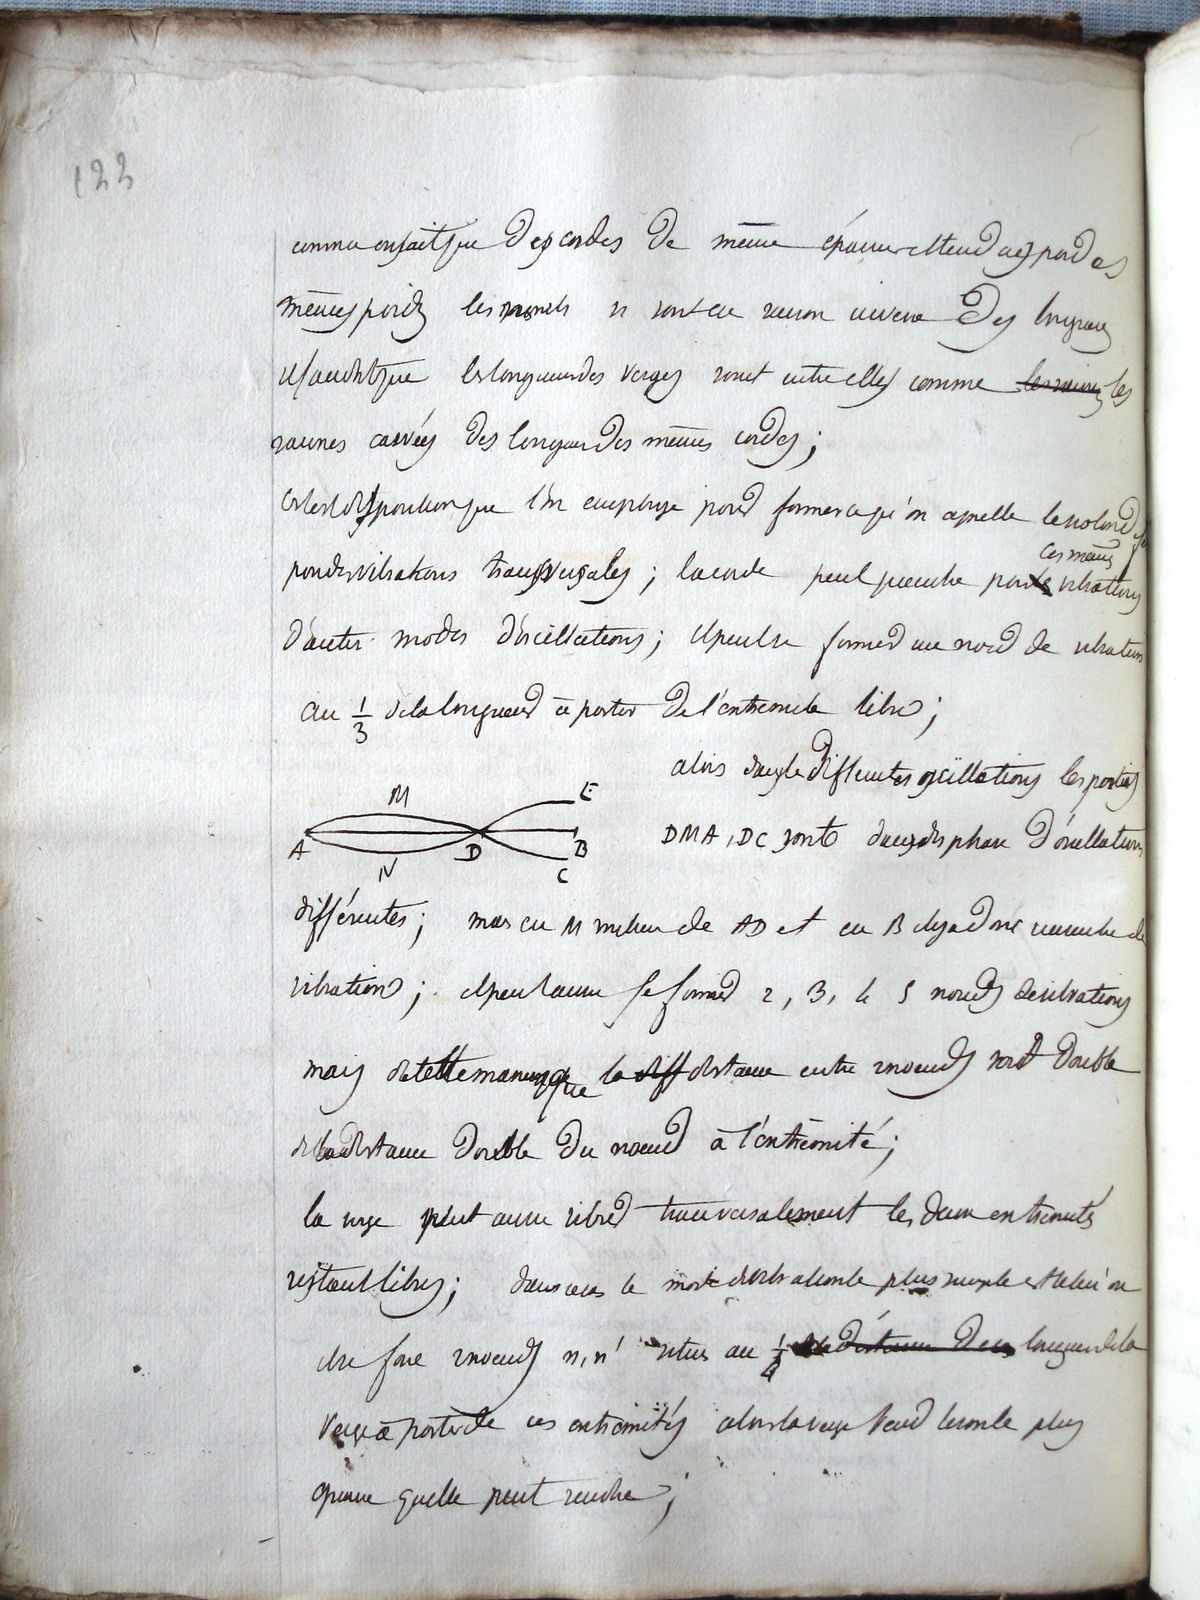 122
comme on sait que des cordes de même épaisseur et tendues par des
mêmes poids les sont en raison inverse des longueurs
il faudrait que les longueurs des verges sont entre elles comme les
racines carrées des longueurs des mêmes cordes ;
disposition que l'on emploie pour former ce qu'on apelle le violon de fer
pour des vibrations transversales ; la corde peut prendre par vibrations
ces mêmes
d'autres modes d'oscillations ; il peut se former un nœud de vibration
au 1/3 de la longueur à partir de l'extremité libre ;
alors dans les différentes oscillations les parties
M
E
A
D
B
N
C
DMA, DC sont dans des phases d'oscillations
différentes ; mais en M milieu de AD et en B il y a donc ventre de
vibration ; il peut aussi se former 2, 3, 4 5 nœuds de vibrations
mais de telle manière que la diff distance entre 2 nœuds soit double
de la distance double du nœud à l'extrémité ;
la verge peut aussi vibrer transversalement les deux extremités
restant libres ; dans ce cas le mode de vibration le plus simple est celui où
il se fait 2 nœuds n, n' situés au 1/4 de la distance de la longueur de la
verge à partir de ces extrémités alors la verge rend le son le plus
grave quelle peut rendre ;